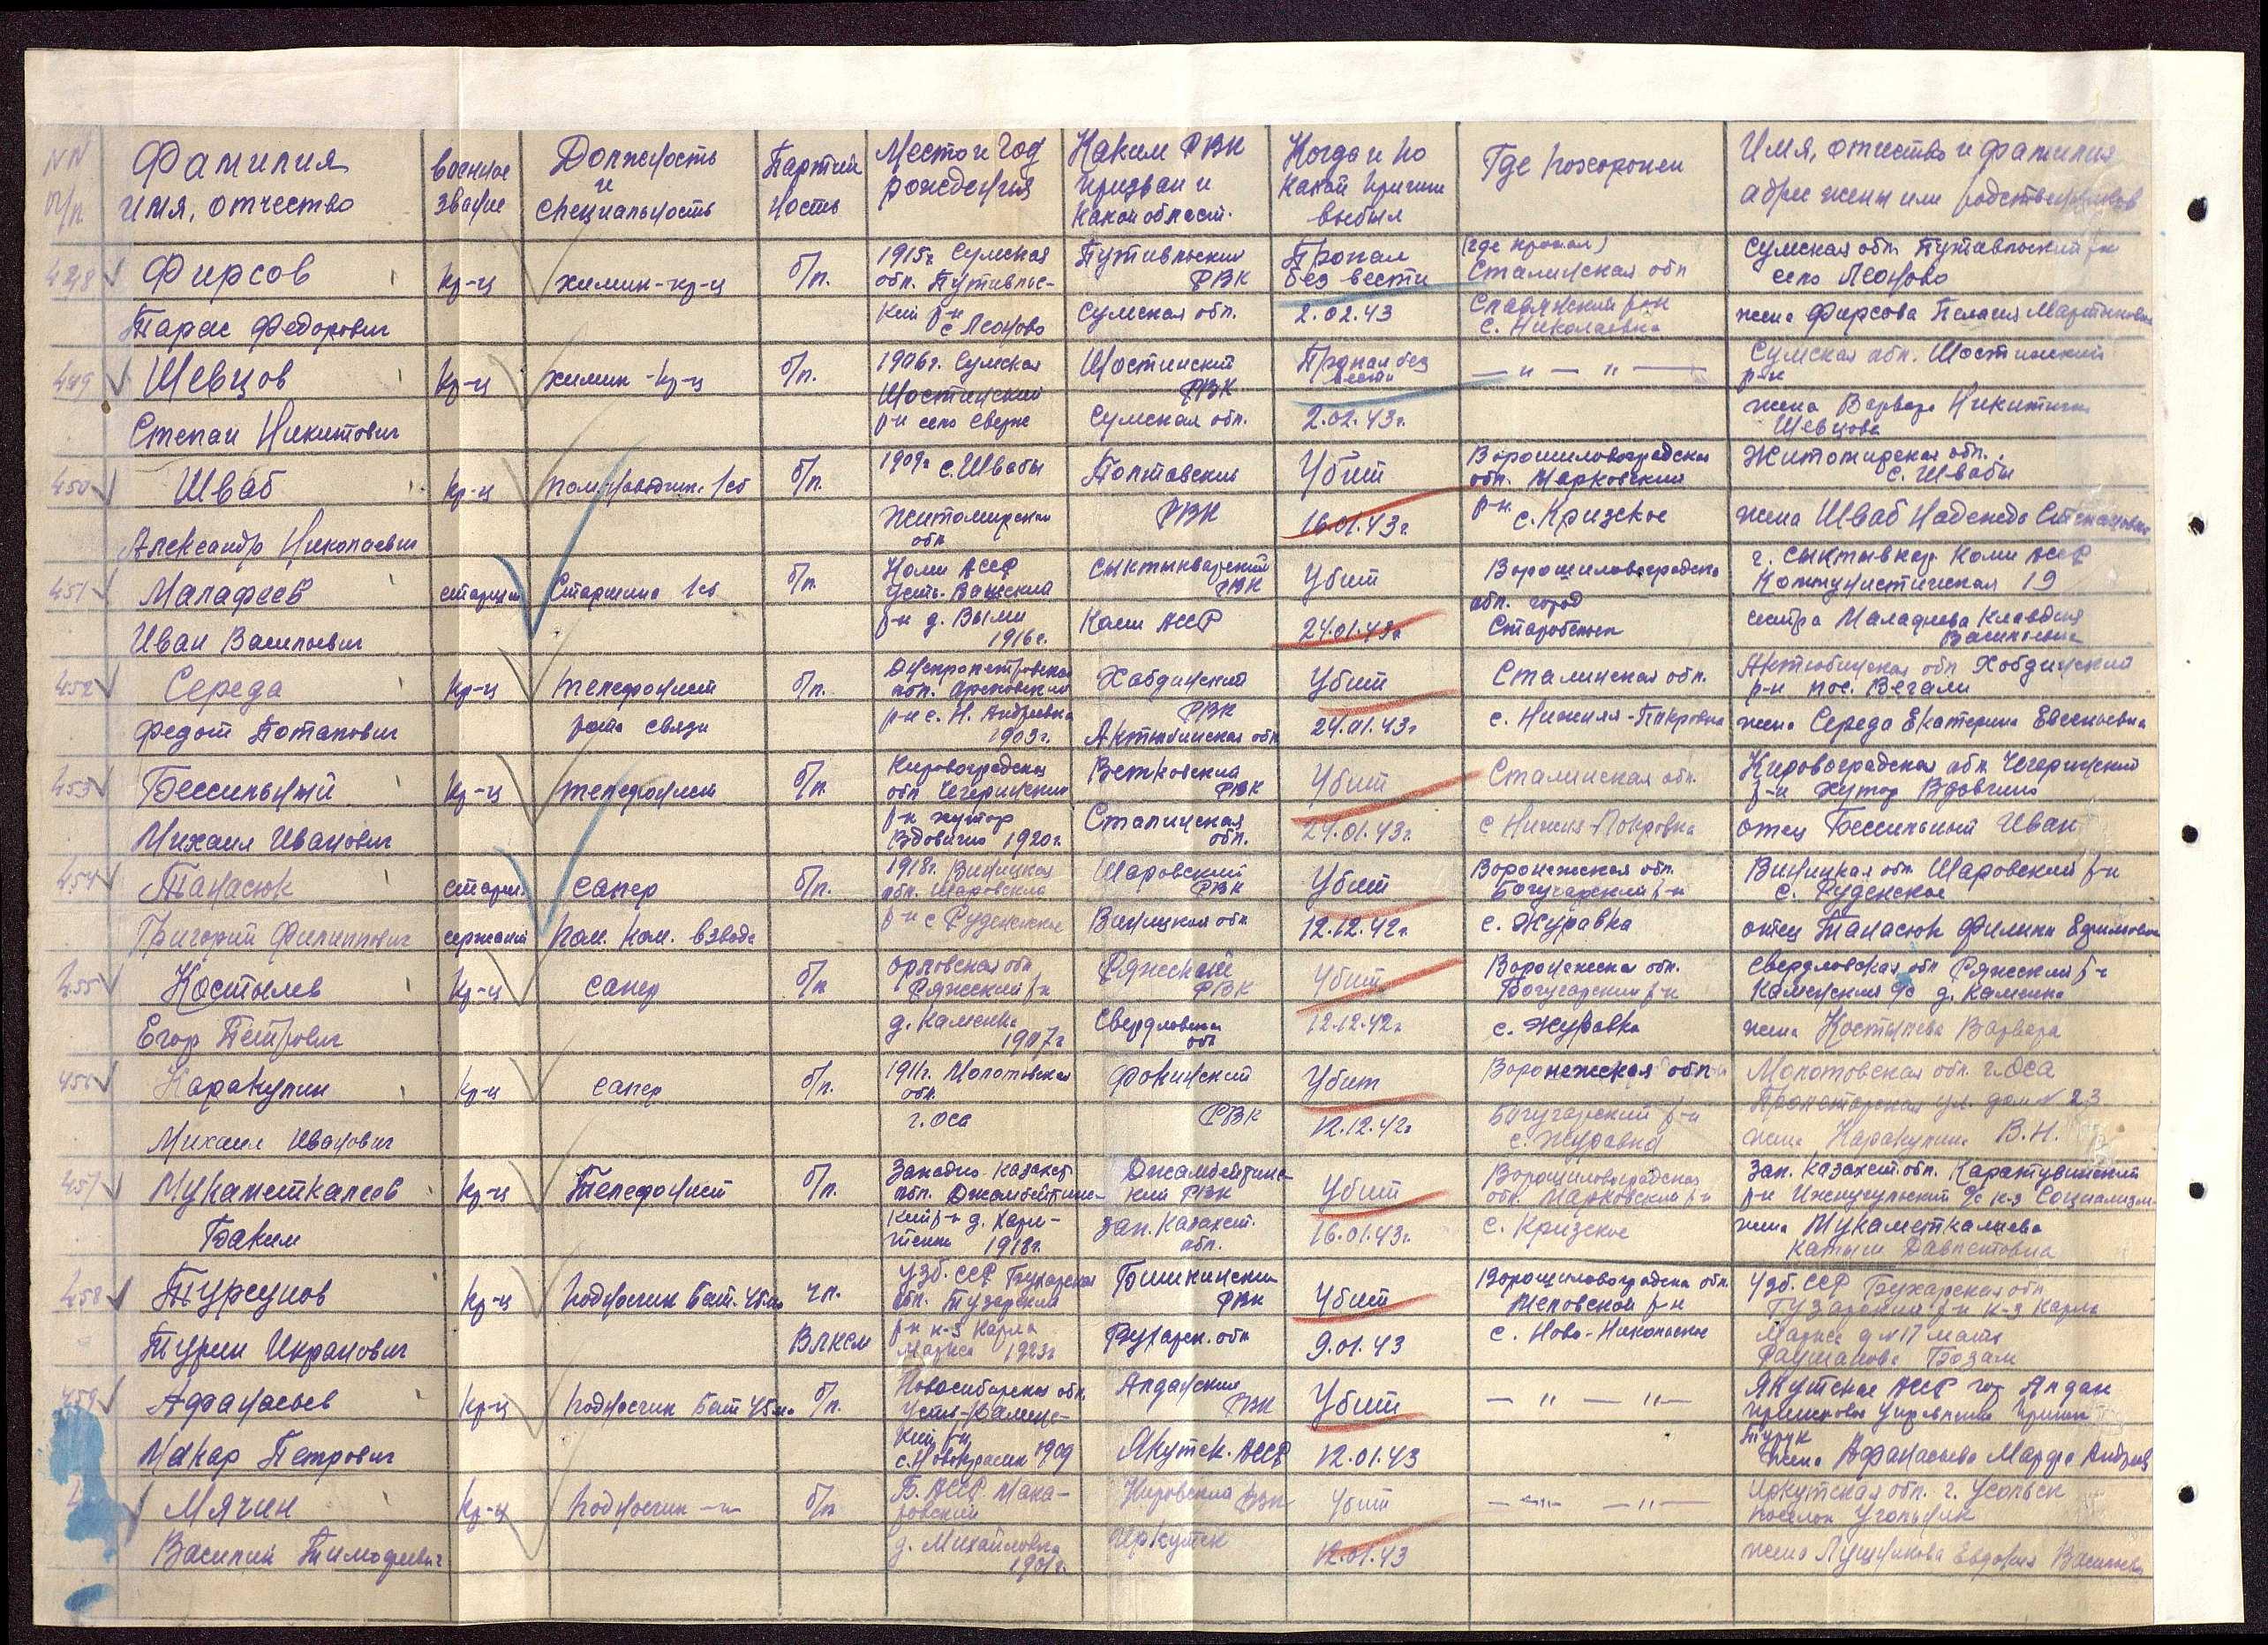 NN п/п. Фамилия имя, отчество | военное звание | Должность и специальность | Партийность | Место и год рождения | Каким РВК призван и какой област. | Когда и по какой причине выбыл | Где похоронен | Имя, отчество и фамилия адрес жены или родственников
448 Фирсов | кр-ц | химик-кр-ц | б/п. | 1915г. Сумская обл. Путивльс- | Путивльский РВК | Пропал без вести | (где пропал) Сталинская обл | Сумская обл. Путивльский р-н село Леоново
Тарас Федорович | кий р-н с Леоново | Сумская обл. | 2.02.43 | Славянский р-н с. Николаевка | жена Фирсова Пелагия Мартыновна
449 Шевцов | кр-ц | химик-кр-ц | б/п. | 1906г. Сумская Шостинский | Шостинский РВК | Пропал без вести | — " — " — | Сумская обл. Шостинский р-н
Степан Никитович | р-н село | Сумская обл. | 2.02.43г. | жена Варвара Никитична Шевцова
450 Шваб | кр-ц | б/п. | 1909г с. Швабы | Полтавский | Убит | Ворошиловградская обл. Марковский | Житомирская обл. с. Швабы
Александр Николаевич | Житомирская обл | РВК | 16.01.43г. | р-н. с. Кризское | жена Шваб Надежда Степановна
451 Малафеев | старшина | Старшина 1сб | б/п. | Коми АССР Усть-Вымский | Сыктывкарский РВК | Убит | Ворошиловградская обл. город | г. Сыктывкар Коми АССР Коммунистическая 19
Иван Васильевич | р-н д. Выми 1916г. | Коми АССР | 24.01.43г | Старобельск | сестра Малафеева Клавдия Васильевна
452 Середа | кр-ц | телефонист | б/п. | Днепропетровская обл. | Хобдинский | Убит | Сталинская обл. | Актюбинская обл Хобдинский р-н пос. Вегали
Федот Потапович | рота связи | р-н с. Н. Андреевка 1903г. | РВК Актюбинская обл | 24.01.43г | с. Нижняя-Покровка | жена Середа Екатерина Евсеньевна
453 Бессильный | кр-ц | телефонист | б/п. | Кировоградская обл Чегеринский | Ветковский РВК | Убит | Сталинская обл. | Кировоградская обл. Чегеринский р-н хутор Вдовчино
Михаил Иванович | р-н хутор Вдовичино 1920г. | Сталинская обл. | 24.01.43г. | с Нижня-Покровка | отец Бессильный Иван
454 Танасюк | старш. | сапер | б/п. | 1918г. Виницкая обл. Шаровский | Шаровский РВК | Убит | Воронежская обл. Богучарский р-н | Виницкая обл. Шаровский р-н с. Руденское
Григорий Филиппович | сержант | Пом. Ком. взвода | р-н с Руденское | Виницкая обл | 12.12.42г | с. Журавка | отец Танасюк Филипп Ефимович
455 Костылев | кр-ц | сапер | б/п | Орловская обл Ряжеский р-н | Ряжский РВК | Убит | Воронежская обл. Богучарский р-н | Свердловская обл Ряжеский р-н Каменский с/с д. Каменка
Егор Петрович | д. Каменка 1907г | Свердловская обл | 12.12.42г | с. Журавка | жена Костылева Варвара
456 Каракулин | кр-ц | сапер | б/п. | 1911г. Молотовская обл. | Фокинский | Убит | Воронежская обл | Молотовская обл. г. Оса Пролетарская ул. дом N 23
Михаил Иванович | г. Оса | РВК | 12.12.42г | Богучарский р-н с. Журавка | жена Каракулина В.Н.
457 Мукаметкалеев | кр-ц | Телефонист | б/п. | Западно-Казахст. обл. Джамбейтинс- | Джамбейтинский РВК | Убит | Ворошиловградская обл. Марковский р-н | Зап. Казахст обл. Каратувинский р-н с/с к-з Социализм
Баким | кий р-н д. 1918г. | Зап. Казахст. обл. | 16.01.43г. | с. Кризское | жена Мукаметкалиева Катыш Давлетовна
458 Турсунов | кр-ц | Подносчик Бат. 45мм | чл. | Узб. ССР Бухарская обл. Гузарский | РВК | Убит | Ворошиловградская обл. Меловской р-н | Узб. ССР Бухарская обл Гузарский р-н к-з Карла
Турш Икранович | ВЛКСМ | р-н к-з Карла Маркса 1923г | Бухарск. обл | 9.01.43 | с. Ново-Никольское | Маркса д N 17 мать Раушанова Бозам
459 Афанасьев | кр-ц | Подносчик Бат 45мм | б/п. | Новосибирская обл. | Алданский РВК | Убит | — " — " — | Якутская АССР гор Алдан приисковое управление прииск
Макар Петрович | кий р-н 1909 | Якутск. АССР | 12.01.43 | Турук жена Афанасьева Марфа Андреев
Мячин | кр-ц | Подносчик —"— | б/п | Б. АССР Мака- ровский | Кировский РВК | Убит | — " — " — | Иркутская обл. г. Усольск поселок Угольник
Василий Тимофеевич | д. Михайловка 1901г. | Иркутск | 12.01.43 | жена Лушникова Евдокия Васильевна